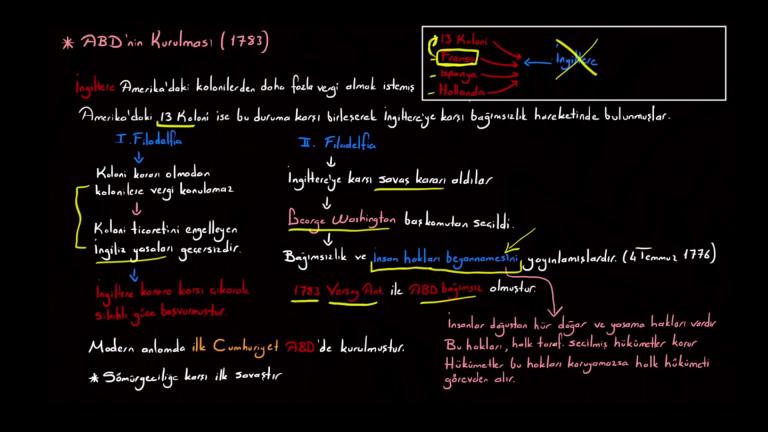 * ABD'nin Kurulması (1783)
13 Koloni
- Fransa
- İspanya
- Hollanda
İngiltere
İngiltere Amerika'daki kolonilerden daha fazla vergi almak istemiş
Amerika'daki 13 Koloni ise bu duruma karşı birleşerek İngiltere'ye karşı bağımsızlık hareketinde bulunmuşlar.
I. Filadelfia
Koloni kararı olmadan
kolonilere vergi konulamaz
Koloni ticaretini engelleyen
İngiliz yasaları geçersizdir.
İngiltere karara karşı çıkarak
silahlı güce başvurmuştur.
II. Filadelfia
İngiltere'ye karşı savaş kararı aldılar
George Washington başkomutan seçildi.
Bağımsızlık ve insan hakları beyannamesini yayınlamışlardır. (4 Temmuz 1776)
1783 Versay Ant. ile ABD bağımsız olmuştur.
İnsanlar doğuştan hür doğar ve yaşama hakları vardır
Bu hakları, halk taraf. seçilmiş hükümetler korur
Hükümetler bu hakları koruyamazsa halk hükümeti
görevden alır.
Modern anlamda ilk Cumhuriyet ABD'de kurulmuştur.
* Sömürgeciliğe karşı ilk savaştır